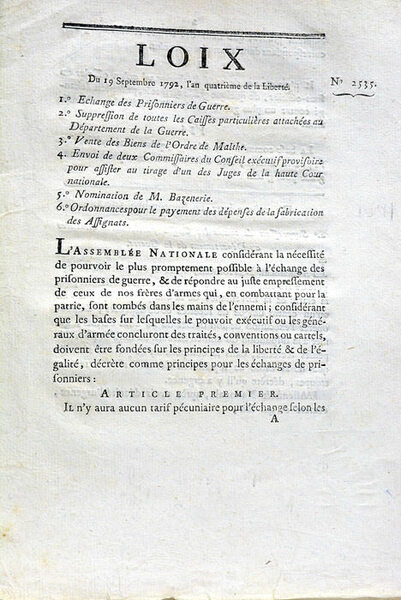 LOIX
Du 19 Septembre 1792, l'an quatrième de la Liberté.
N° 2535.
1.° Echange des Prisonniers de Guerre.
2.° Suppression de toutes les Caisses particulières attachées au
Département de la Guerre.
3.° Vente des Biens de l'Ordre de Malthe.
4. Envoi de deux Commissaires du Conseil exécutif provisoire
pour assister au tirage d'un des Juges de la haute Cour
nationale.
5.° Nomination de M. Bazenerie.
6.° Ordonnances pour le payement des dépenses de la fabrication
des Assignats.
L'ASSEMBLÉE NATIONALE considérant la nécessité
de pourvoir le plus promptement possible à l'échange des
prisonniers de guerre, & de répondre au juste empressement
de ceux de nos frères d'armes qui, en combattant pour la
patrie, sont tombés dans les mains de l'ennemi; considérant
que les bases sur lesquelles le pouvoir exécutif ou les géné-
raux d'armée concluront des traités, conventions ou cartels,
doivent être fondées sur les principes de la liberté & de l'é-
galité, décrète comme principes pour les échanges de pri-
sonniers:
ARTICLE PREMIER.
IL n'y aura aucun tarif pécuniaire pour l'échange selon les
A